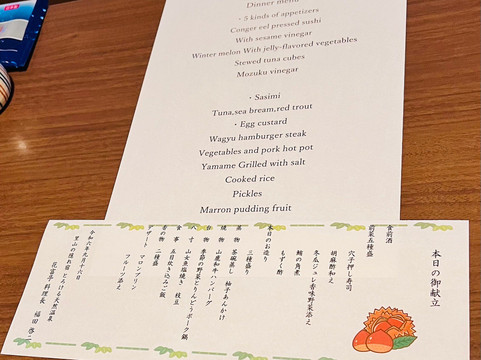 Dinner menu
・5 kinds of appetizers
Conger eel pressed sushi
With sesame vinegar
Winter melon With jelly-flavored vegetables
Stewed tuna cubes
Mozuku vinegar
・Sasimi
Tuna,sea bream,red trout
・Egg custard
Wagyu hamburger steak
Vegetables and pork hot pot
Yamame Grilled with salt
Cooked rice
Pickles
Marron pudding fruit
本日の御献立
食前酒
前菜五種盛
穴子押し寿司
胡麻酢和え
冬瓜ジュレ香味野菜添え
鮪の角煮
もずく酢
本日のお造り
三種盛り
蒸物 茶碗蒸し 柚子あんかけ
焼物 山鹿和牛ハンバーグ
台物 季節の野菜とりんどうポーク鍋
八寸 山女魚塩焼き 枝豆
食事 五目炊き込みご飯
香の物 二種盛り
デザート マロンプリン
フルーツ添え
令和六年九月十六日
里山の隠れ宿 とろける天然温泉
花富亭 料理長 福田 啓一